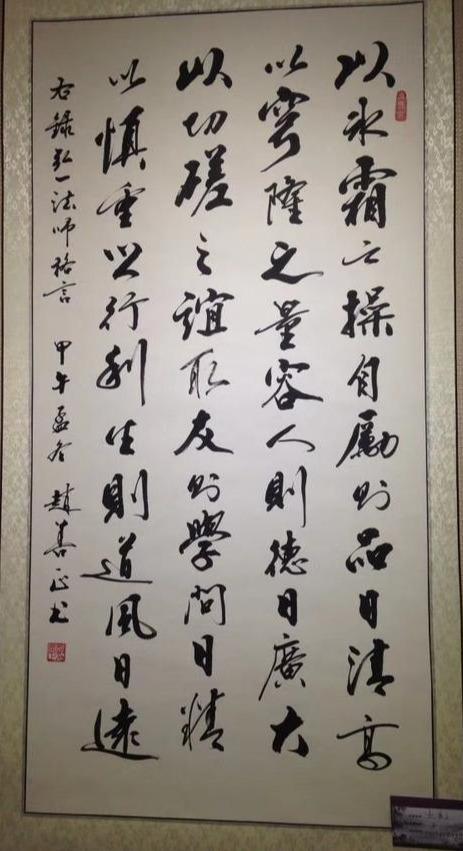 以冰霜之操自勵則品日清高
以穹隆之量容人則德日廣大
以切磋之誼取友則學問日精
以慎重之行利生則道風日遠
右錄弘一法師格言 甲午孟冬 趙善正書